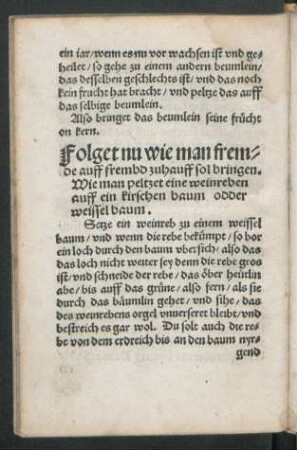 ein iar/ wenn es nu vor wachsen ist vnd ge-
heilet/ so gehe zu einem andern beumlein/
das desselben geschlechts ist/ vnd das noch
kein frucht hat bracht/ vnd peltze das auff
das selbige beumlein.
Also bringet das beumlein seine frücht
on kern.
Folget nu wie man frem-
de auff frembd zuhauff sol bringen.
Wie man peltzet eine weinreben
auff ein kirschen baum odder
weissel baum.
Setze ein weinreb zu einem weissel
baum/ vnd wenn die rebe bekümpt/ so bor
ein loch durch den baum vbersich/ also das
das loch nicht weiter sey denn die rebe gros
ist/ vnd schneide der rebe/ das öber heutlin
abe/ bis auff das grüne/ also fern/ als sie
durch das bäumlin gehet/ vnd sihe/ das
des weinrebens orgel vnuerseret bleibt/ vnd
bestreich es gar wol. Du solt auch die re-
be von dem erdreich bis an den baum nyr-
gend